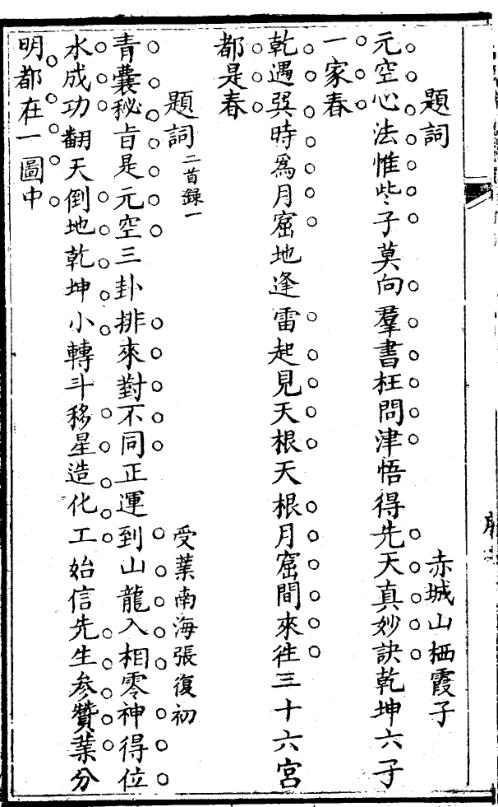 題詞
赤城山栖霞子
元空心法惟些子莫向羣書枉問津悟得先天真妙訣乾坤六子
一家春
乾遇巽時為月窟地逢雷起見天根天根月窟間來徃三十六宮
都是春
題詞二首錄一
受業南海張復初
青囊秘旨是元空三卦排來對不同正運到山龍入相零神得位
水成功翻天倒地乾坤小轉斗移星造化工始信先生參贊業分
明都在一圖中